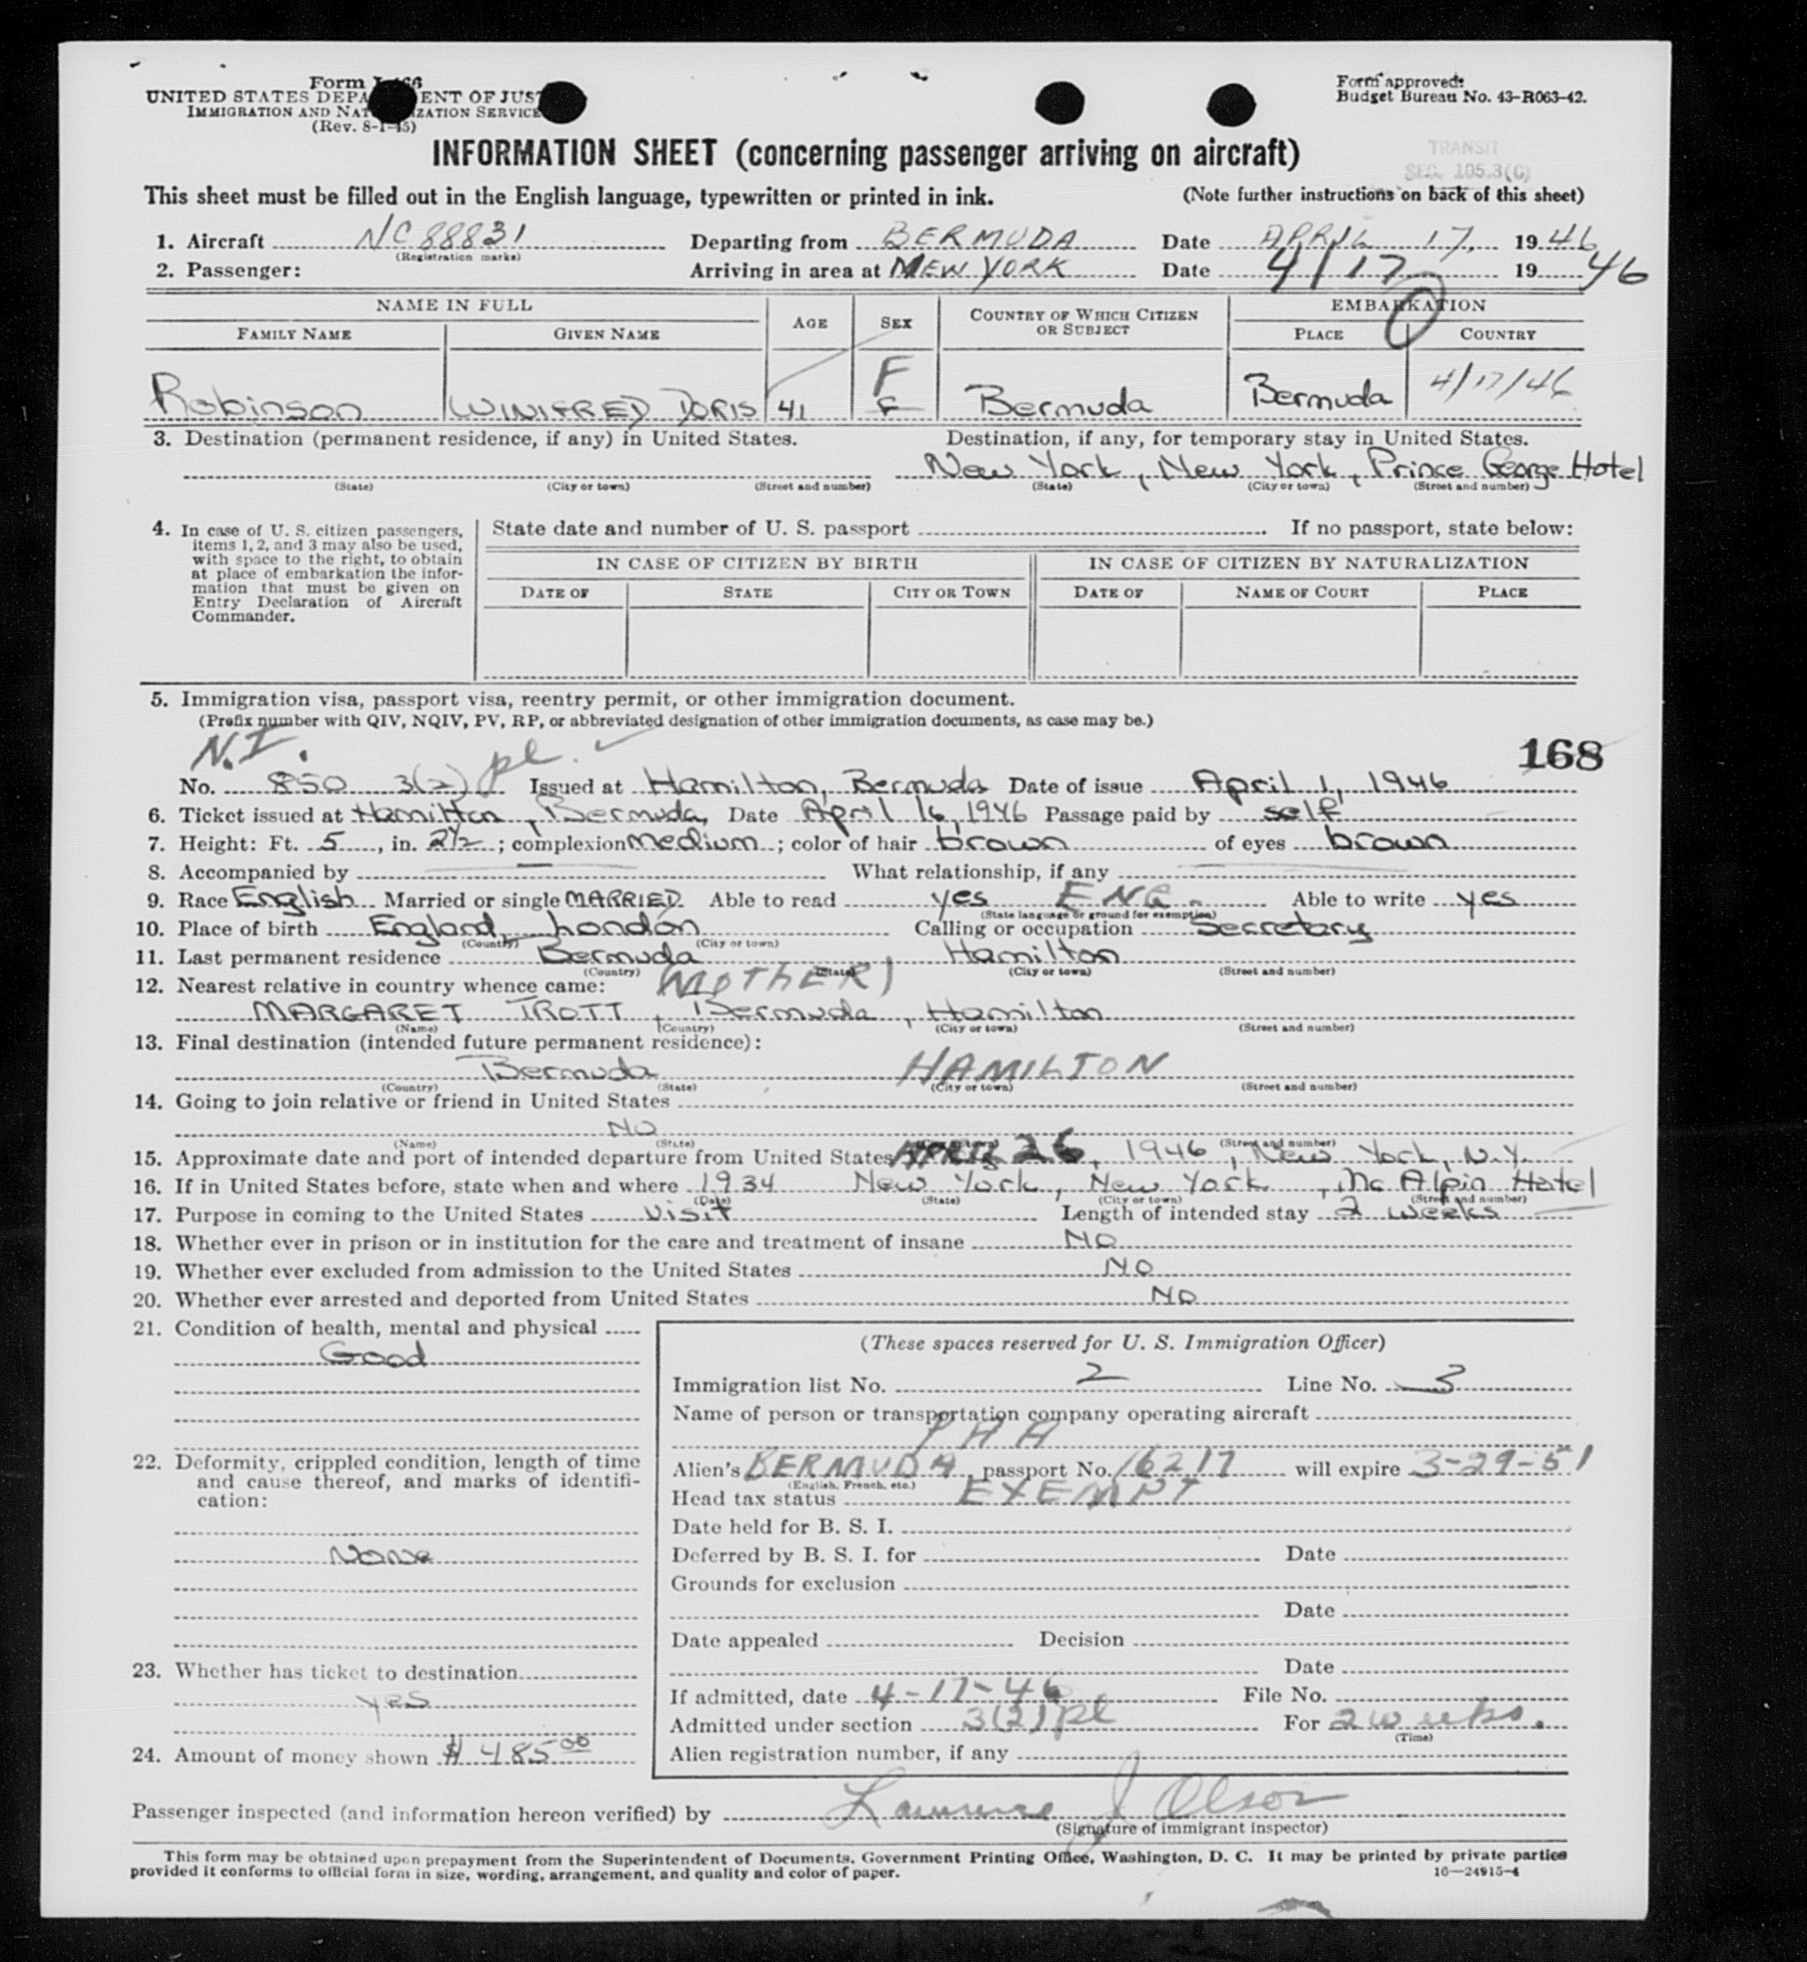 Form I-466
UNITED STATES DEPA ENT OF JUS
IMMIGRATION AND NAT IZATION SERVICE
(Rev. 8-1-45)
Form approved:
Budget Bureau No. 43-R063-42.
INFORMATION SHEET (concerning passenger arriving on aircraft)
TRANSIT
SEC. 105.3(C)
This sheet must be filled out in the English language, typewritten or printed in ink. (Note further instructions on back of this sheet)
1. Aircraft NC 88831 Departing from BERMUDA Date APRIL 17, 1946
(Registration marks)
2. Passenger: Arriving in area at NEW YORK Date 4/17 1946
NAME IN FULL AGE SEX COUNTRY OF WHICH CITIZEN OR SUBJECT EMBARKATION
FAMILY NAME GIVEN NAME PLACE COUNTRY
F
Robinson WINIFRED DORIS 41 F Bermuda Bermuda 4/17/46
3. Destination (permanent residence, if any) in United States. Destination, if any, for temporary stay in United States.
New York, New York, Prince George Hotel
(State) (City or town) (Street and number) (State) (City or town) (Street and number)
4. In case of U. S. citizen passengers, items 1, 2, and 3 may also be used, with space to the right, to obtain at place of embarkation the information that must be given on Entry Declaration of Aircraft Commander.
State date and number of U. S. passport If no passport, state below:
IN CASE OF CITIZEN BY BIRTH IN CASE OF CITIZEN BY NATURALIZATION
DATE OF STATE CITY OR TOWN DATE OF NAME OF COURT PLACE
5. Immigration visa, passport visa, reentry permit, or other immigration document.
(Prefix number with QIV, NQIV, PV, RP, or abbreviated designation of other immigration documents, as case may be.)
N.I. 168
No. 850 3(2) pl. Issued at Hamilton, Bermuda Date of issue April 1, 1946
6. Ticket issued at Hamilton, Bermuda, Date April 16, 1946 Passage paid by self
7. Height: Ft. 5, in. 2½; complexion medium; color of hair brown of eyes brown
8. Accompanied by — What relationship, if any —
9. Race English Married or single MARRIED Able to read yes ENG. Able to write yes
(State language or ground for exemption)
10. Place of birth England, London Calling or occupation Secretary
(Country) (City or town)
11. Last permanent residence Bermuda Hamilton
(Country) (State) (City or town) (Street and number)
12. Nearest relative in country whence came: (MOTHER)
MARGARET TROTT, Bermuda, Hamilton
(Name) (Country) (City or town) (Street and number)
13. Final destination (intended future permanent residence):
Bermuda HAMILTON
(Country) (State) (City or town) (Street and number)
14. Going to join relative or friend in United States
No
(Name) (State) (Street and number)
15. Approximate date and port of intended departure from United States APRIL 26, 1946, New York, N.Y.
(Date)
16. If in United States before, state when and where 1934 New York, New York, Mc Alpin Hotel
(State) (City or town) (Street and number)
17. Purpose in coming to the United States visit Length of intended stay 2 weeks
18. Whether ever in prison or in institution for the care and treatment of insane NO
19. Whether ever excluded from admission to the United States NO
20. Whether ever arrested and deported from United States NO
21. Condition of health, mental and physical
Good
22. Deformity, crippled condition, length of time and cause thereof, and marks of identification:
None
23. Whether has ticket to destination
yes
24. Amount of money shown $ 485.00
(These spaces reserved for U. S. Immigration Officer)
Immigration list No. 2 Line No. 3
Name of person or transportation company operating aircraft
PAA
Alien's BERMUDA, passport No. 16217 will expire 3-29-51
(English, French, etc.)
Head tax status EXEMPT
Date held for B. S. I.
Deferred by B. S. I. for Date
Grounds for exclusion
Date
Date appealed Decision
Date
If admitted, date 4-17-46 File No.
Admitted under section 3(2) pl For 2 weeks.
(Time)
Alien registration number, if any
Passenger inspected (and information hereon verified) by Lawrence J Olson
(Signature of immigrant inspector)
This form may be obtained upon prepayment from the Superintendent of Documents, Government Printing Office, Washington, D. C. It may be printed by private parties
provided it conforms to official form in size, wording, arrangement, and quality and color of paper. 16—24915-4